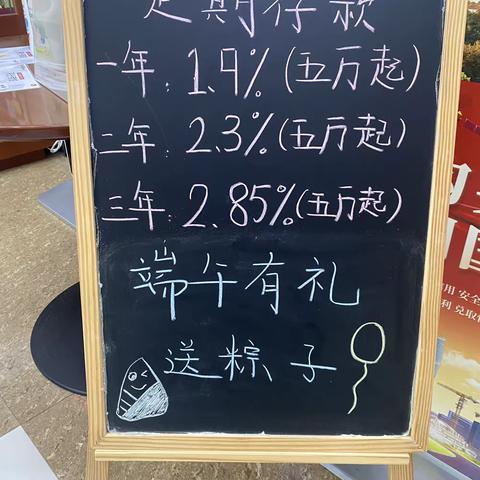 定期存款
一年: 1.9% (五万起)
二年: 2.3% (五万起)
三年: 2.85% (五万起)
端午有礼
送粽子